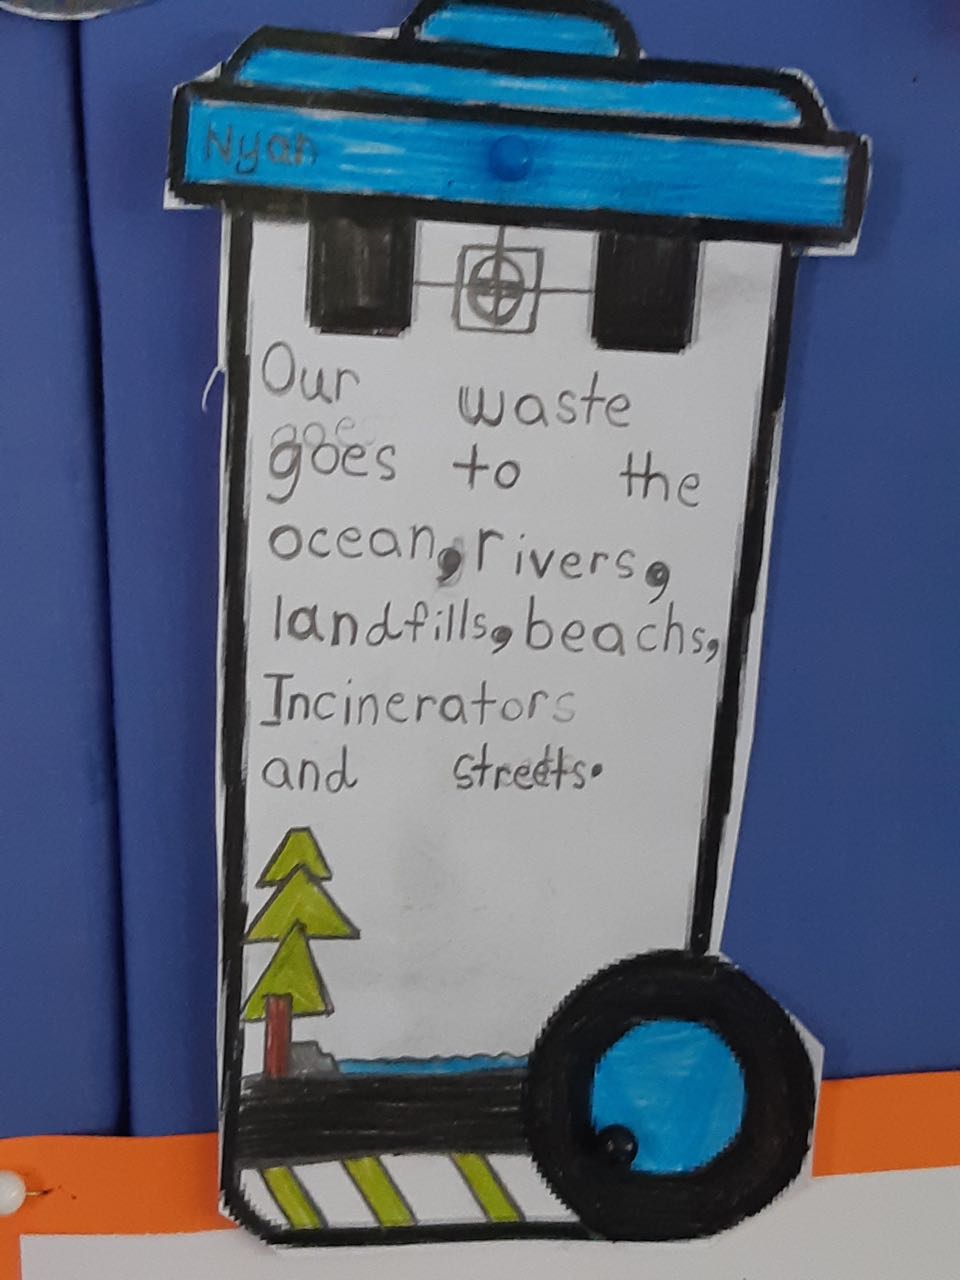 Nyan
Our waste
goes to the
ocean, rivers,
landfills, beachs,
Incinerators
and streets.